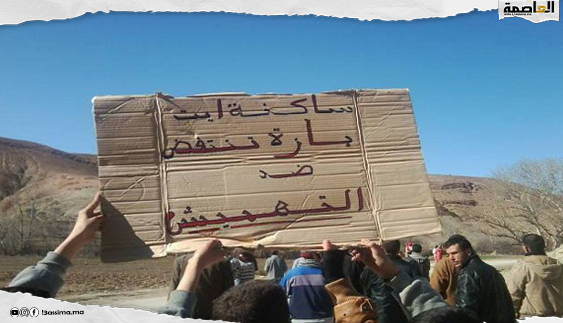 العاصمة
ساكنة ايت
بارة تنتفض
ضد
التهميش
3assima.ma